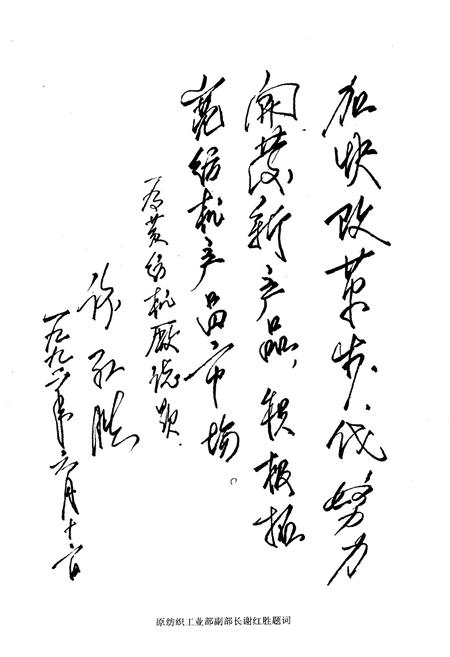 加快改革步伐，努力
開发新产品，积极拓
宽纺机产品市场。
为黄纺机厰志题
谢红胜
一九九二年六月十日
原纺织工业部副部长谢红胜题词